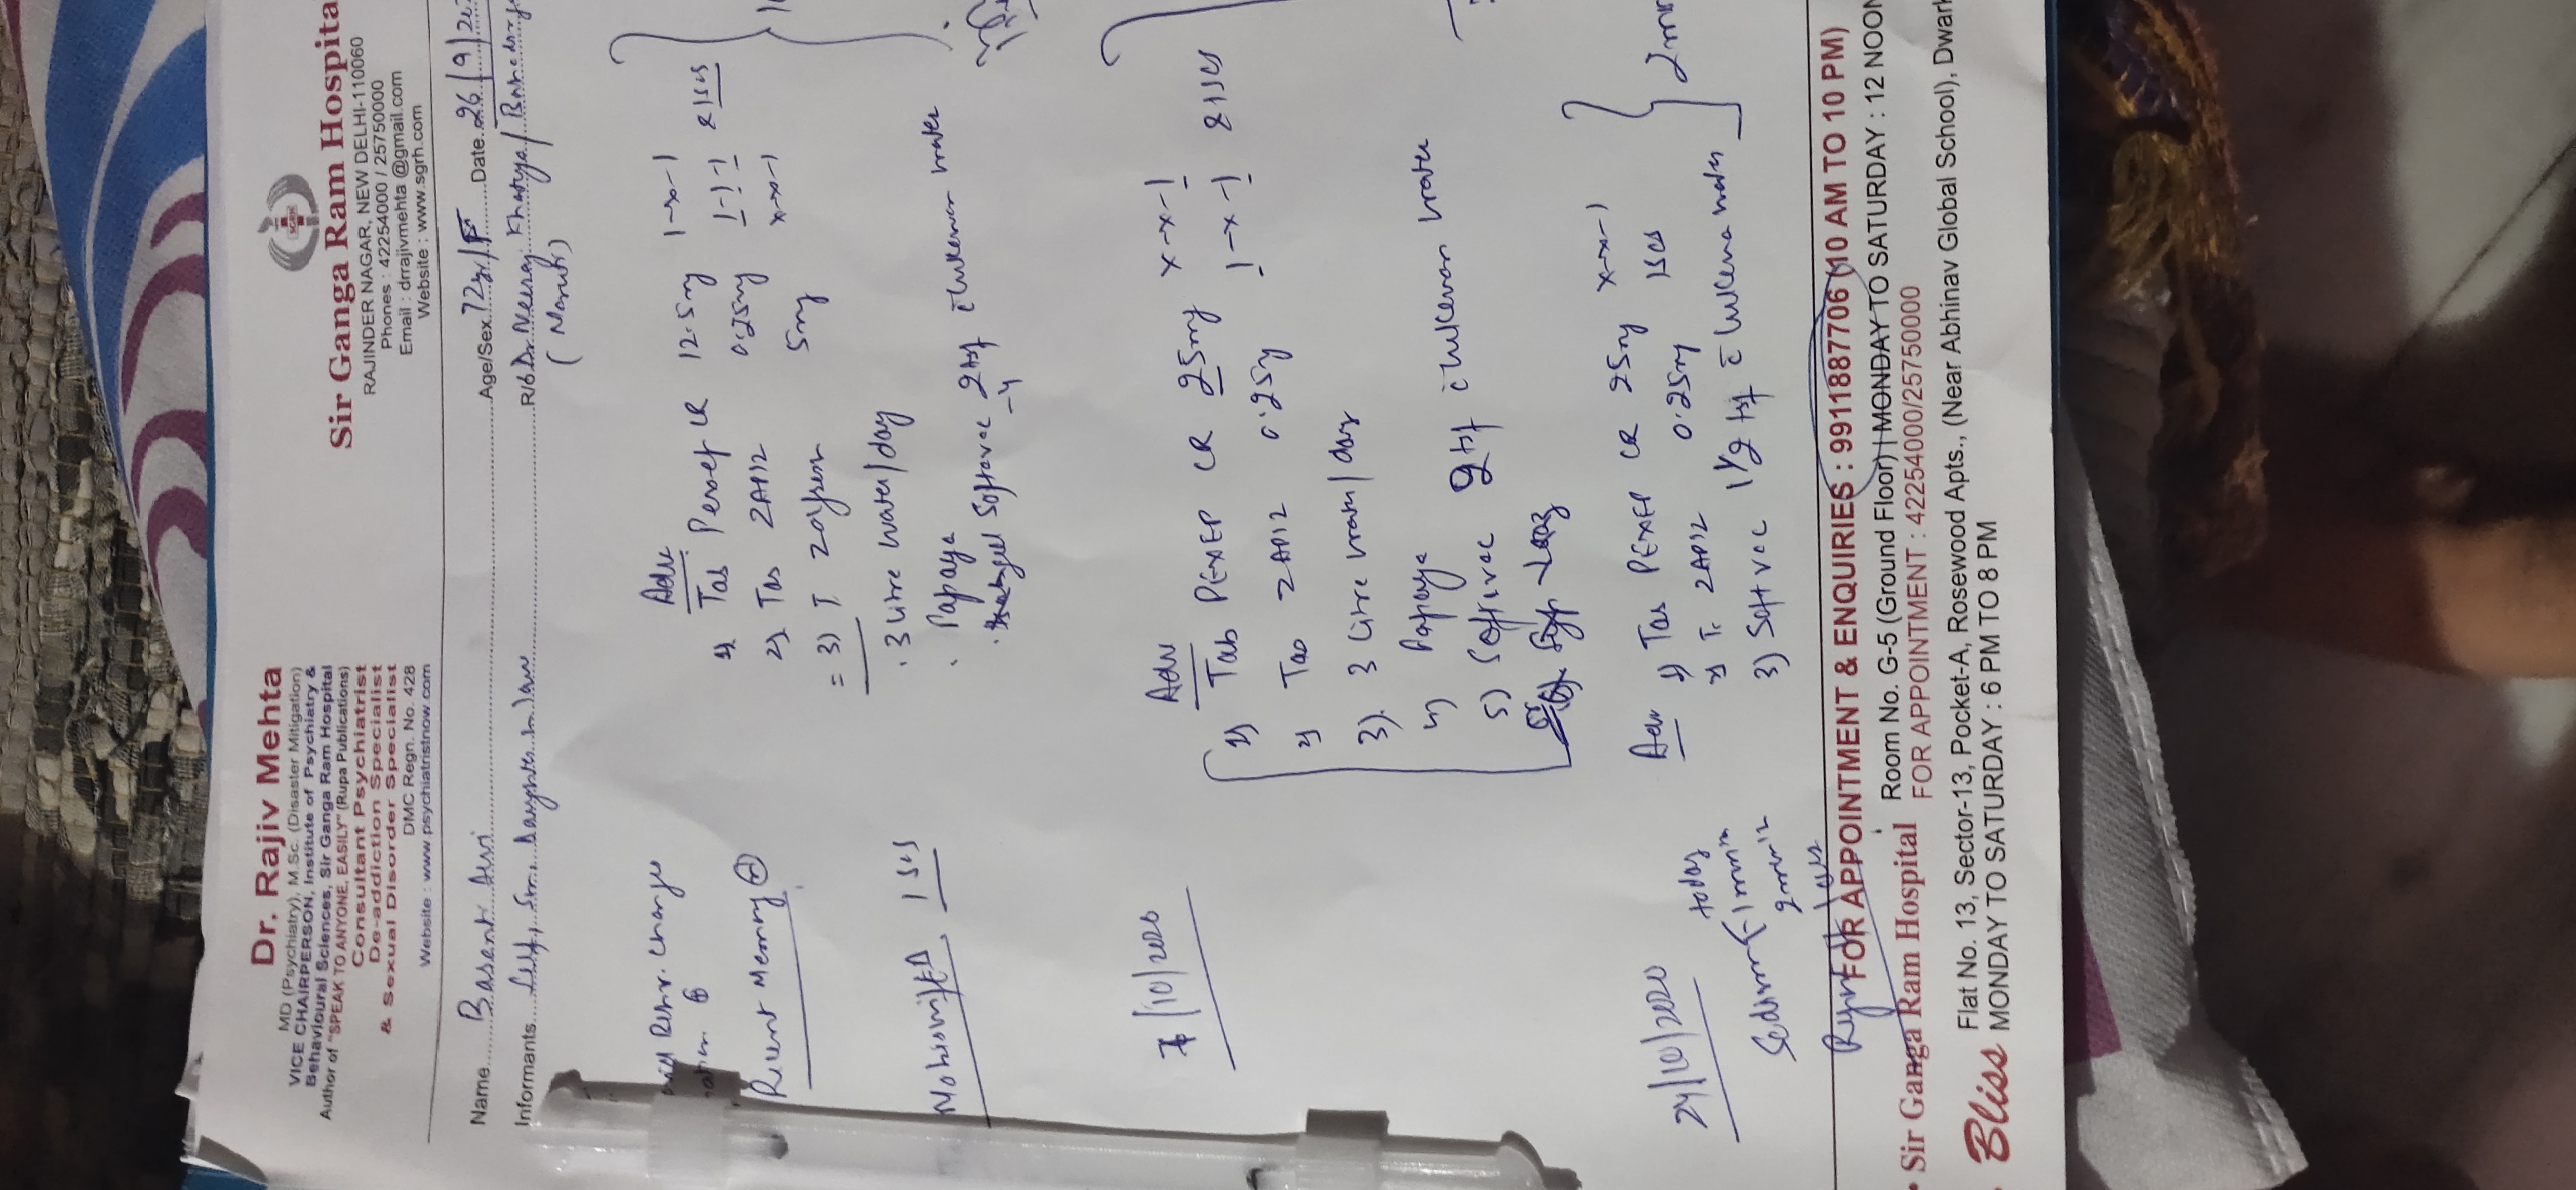 Dr. Rajiv Mehta
MD (Psychiatry), M.Sc. (Disaster Mitigation)
VICE CHAIRPERSON, Institute of Psychiatry &
Behavioural Sciences, Sir Ganga Ram Hospital
Author of "SPEAK TO ANYONE, EASILY" (Rupa Publications)
Consultant Psychiatrist
De-addiction Specialist
& Sexual Disorder Specialist
DMC Regn. No. 428
Website : www.psychiatristnow.com
SGRH
Sir Ganga Ram Hospita
RAJINDER NAGAR, NEW DELHI-110060
Phones : 42254000 / 25750000
Email : drrajivmehta @gmail.com
Website : www.sgrh.com
Name Basenti Devi Age/Sex 72yr/F Date 26/9/20
Informants Self, Son, Daughter in law R/o Dr Neeraj
Behv. Changes
Recent Memory
1 SOS
Adv
1) Tab Pexep CR 12.5mg 1-x-1
2) Tab ZAPIZ 0.25mg 1-1-1 & 1SOS
= 3) T 5mg x-x-1
. 3 litre water/day
. Papaya
. Softovac 2 tsf c lukewarm water
7/10/2020
Adv
1) Tab PEXEP CR 25mg x-x-1
2) Tab ZAPIZ 0.25mg 1-x-1 & 1SOS
3). 3 litre water/day
4) Papaya
5) Softovac 2 tsf c lukewarm water
24/10/2020
Adv 1) Tab PEXEP CR 25mg x-x-1
2) T. ZAPIZ 0.25mg 1SOS
3) Softovac 1 1/2 tsf c lukewarm water
today
FOR APPOINTMENT & ENQUIRIES : 9911887706 (10 AM TO 10 PM)
• Sir Ganga Ram Hospital Room No. G-5 (Ground Floor) | MONDAY TO SATURDAY : 12 NOON
FOR APPOINTMENT : 42254000/25750000
Bliss Flat No. 13, Sector-13, Pocket-A, Rosewood Apts., (Near Abhinav Global School), Dwark
MONDAY TO SATURDAY : 6 PM TO 8 PM